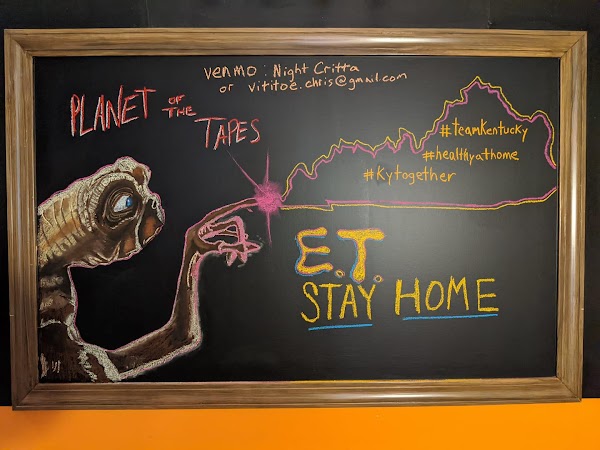 venmo : Night Critta
or vititoe.chris@gmail.com
PLANET OF THE TAPES
#teamkentucky
#healthyathome
#kytogether
E.T.
STAY HOME